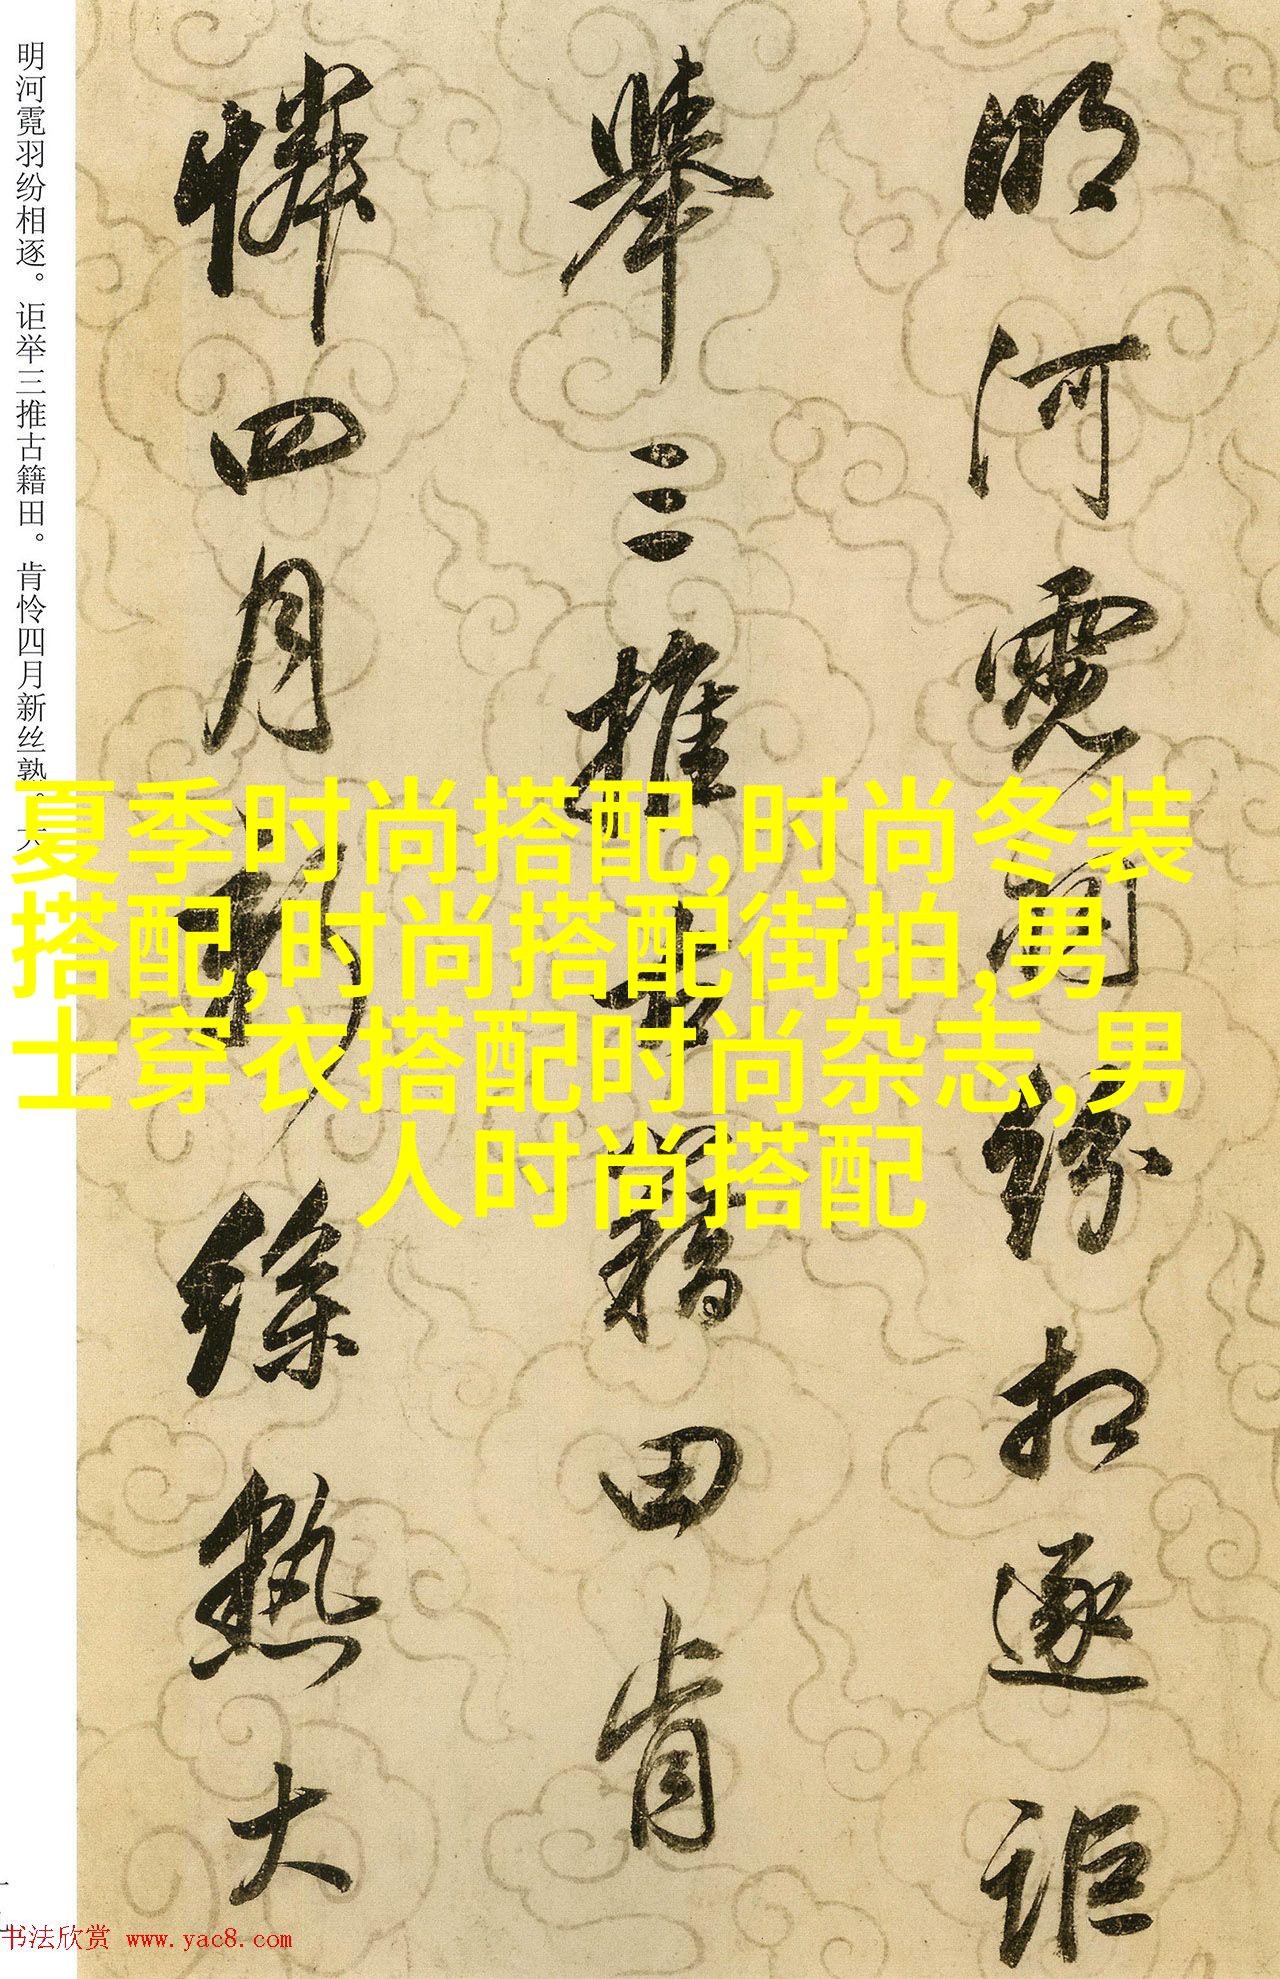 明河霓羽纷相逐。讵举三推古籍田。肯怜四月新丝熟。大
明河霓羽纷相逐讵
舉三推古籍田肯
憐四月新絲熟大
夏季时尚搭配,时尚冬装
搭配,时尚搭配街拍,男
士穿衣搭配时尚杂志,男
人时尚搭配
书法欣赏 www.yac8.com